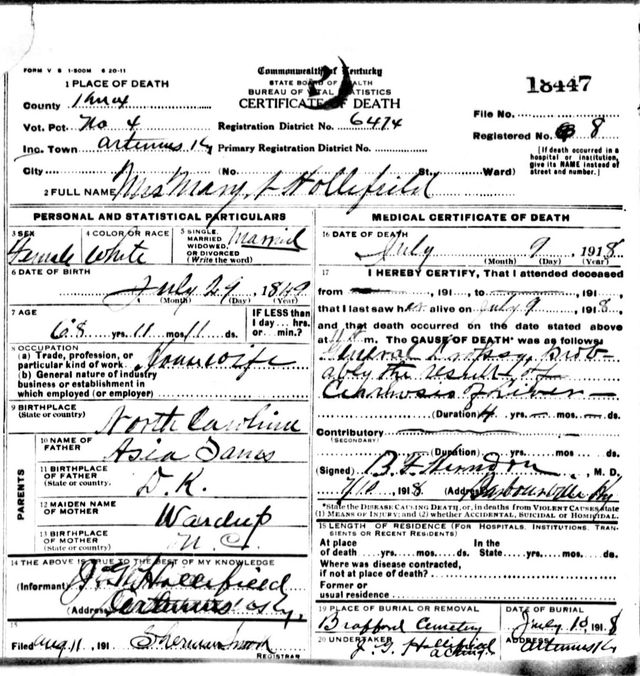 FORM V S 1-500M 6 20-11
Commonwealth of Kentucky
STATE BOARD OF HEALTH
BUREAU OF VITAL STATISTICS
CERTIFICATE OF DEATH
18447
1 PLACE OF DEATH
County Knox
Vot. Pct. No 4 Registration District No. 6474
Inc. Town Artemus Ky Primary Registration District No.
City (No. St., Ward)
File No.
Registered No. 8
[If death occurred in a hospital or institution, give its NAME instead of street and number.]
2 FULL NAME Mrs Mary Hollefield
PERSONAL AND STATISTICAL PARTICULARS
3 SEX Female
4 COLOR OR RACE White
5 SINGLE, MARRIED WIDOWED, OR DIVORCED (Write the word) Married
6 DATE OF BIRTH July 29, 1849
(Month) (Day) (Year)
7 AGE 68 yrs. 11 mos. 11 ds.
IF LESS than 1 day....hrs. or....min.?
8 OCCUPATION
(a) Trade, profession, or particular kind of work Housewife
(b) General nature of industry business or establishment in which employed (or employer)
9 BIRTHPLACE (State or country) North Carolina
PARENTS
10 NAME OF FATHER Asia
11 BIRTHPLACE OF FATHER (State or country) D.K.
12 MAIDEN NAME OF MOTHER Wardup
13 BIRTHPLACE OF MOTHER (State or country) N.C.
14 THE ABOVE IS TRUE TO THE BEST OF MY KNOWLEDGE
(Informant) Hollifield
(Address) Artemus Ky.
15
Filed Aug 11, 191 Sherman
REGISTRAR
MEDICAL CERTIFICATE OF DEATH
16 DATE OF DEATH July 9, 1918
(Month) (Day) (Year)
17 I HEREBY CERTIFY, That I attended deceased
from , 191 , to , 191
that I last saw her alive on July 9, 1918,
and that death occurred on the date stated above
at m. The CAUSE OF DEATH* was as follows:
General Dropsy, Prob-
ably the result of
Cirrhosis of liver
(Duration) 4 yrs. mos. ds.
Contributory
(SECONDARY)
(Duration) yrs. mos. ds.
(Signed) B. F. Herndon, M. D.
7/10, 1918 (Address) Barbourville Ky
*State the DISEASE CAUSING DEATH, or, in deaths from VIOLENT CAUSES, state
(1) MEANS OF INJURY; and (2) whether ACCIDENTAL, SUICIDAL or HOMICIDAL.
18 LENGTH OF RESIDENCE (FOR HOSPITALS, INSTITUTIONS, TRANSIENTS OR RECENT RESIDENTS)
At place of death yrs. mos. ds. In the State yrs. mos. ds.
Where was disease contracted,
if not at place of death?
Former or
usual residence
19 PLACE OF BURIAL OR REMOVAL Brafford Cemetery
DATE OF BURIAL July 10, 1918
20 UNDERTAKER J. G. Hollifield acting
ADDRESS Artemus Ky